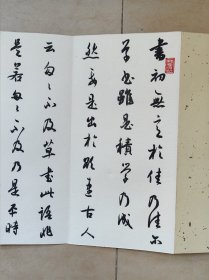 書初無意於佳乃佳尔
草書雖是積學乃成
然要是出於欲速古人
云匆〻不及草書此語非
是若匆〻不及乃是平時